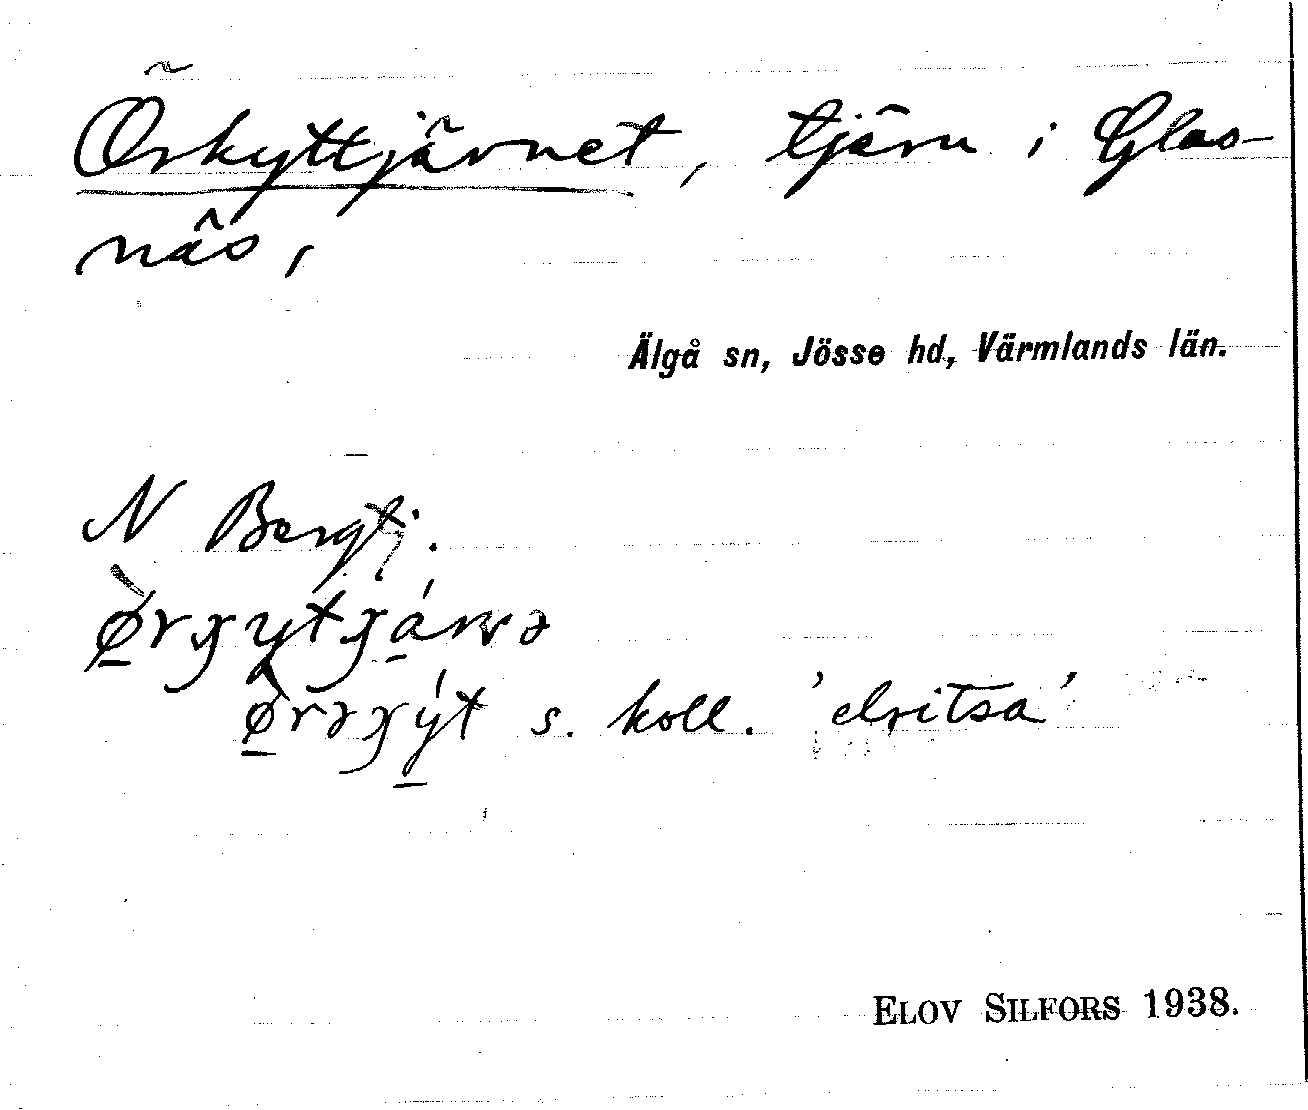 Örkyttjärnet, tjärn i Glas-
näs,
Älgå sn, Jösse hd, Värmlands län.
N Bergtj.
s. koll. 'elritsa'
ELOV SILFORS 1938.